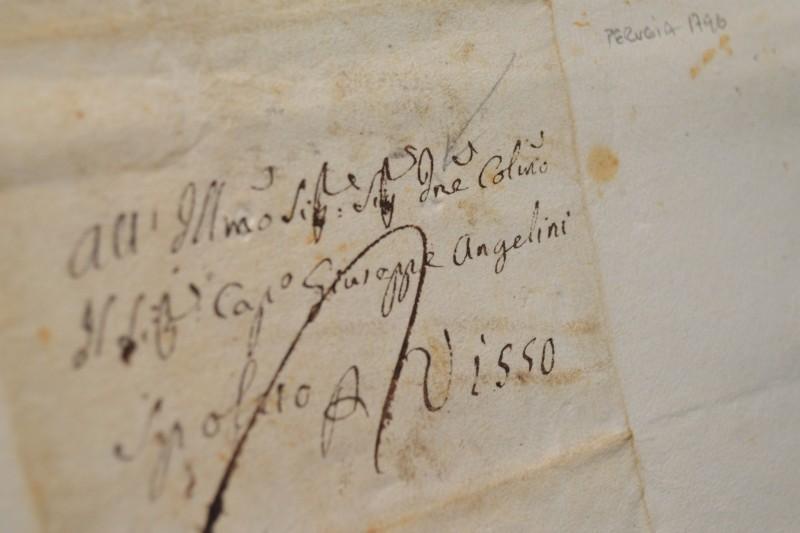 PERUGIA 1796
All' Illmo Sig: Sig Pne Colmo
Il Sig Capo Giuseppe Angelini
Spoleto A Visso